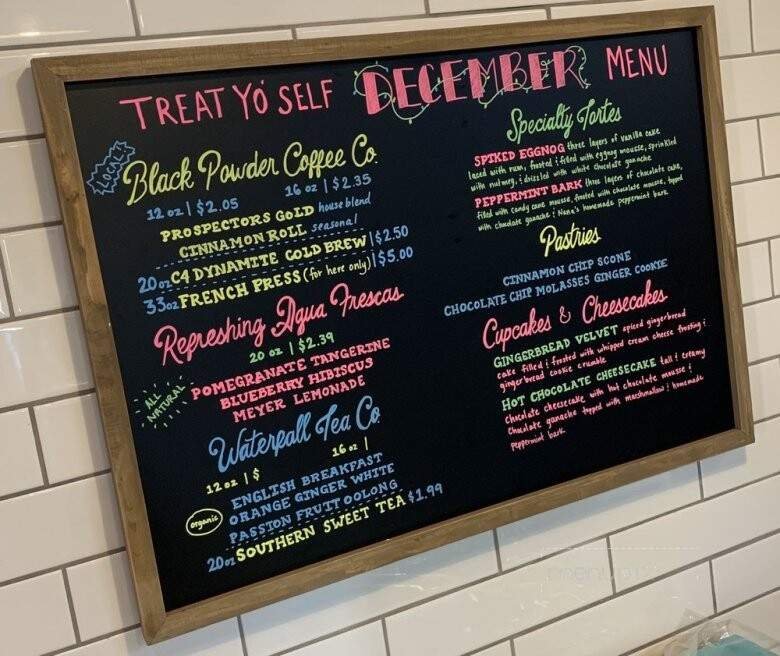 TREAT YO' SELF DECEMBER MENU
LOCAL
Black Powder Coffee Co.
12 oz | $2.05 16 oz | $2.35
PROSPECTORS GOLD house blend
CINNAMON ROLL seasonal
20 oz C4 DYNAMITE COLD BREW | $2.50
33 oz FRENCH PRESS (for here only) | $5.00
Refreshing Agua Frescas
20 oz | $2.39
ALL NATURAL
POMEGRANATE TANGERINE
BLUEBERRY HIBISCUS
MEYER LEMONADE
Waterfall Tea Co.
12 oz | $ 16 oz |
organic
ENGLISH BREAKFAST
ORANGE GINGER WHITE
PASSION FRUIT OOLONG
20 oz SOUTHERN SWEET TEA $1.99
Specialty Tortes
SPIKED EGGNOG three layers of vanilla cake
laced with rum, frosted & filled with eggnog mousse, sprinkled
with nutmeg, & drizzled with white chocolate ganache
PEPPERMINT BARK three layers of chocolate cake,
filled with candy cane mousse, frosted with chocolate mousse, topped
with chocolate ganache & Nana's homemade peppermint bark
Pastries
CINNAMON CHIP SCONE
CHOCOLATE CHIP MOLASSES GINGER COOKIE
Cupcakes & Cheesecakes
GINGERBREAD VELVET spiced gingerbread
cake filled & frosted with whipped cream cheese frosting &
gingerbread cookie crumble
HOT CHOCOLATE CHEESECAKE tall & creamy
chocolate cheesecake with hot chocolate mousse &
chocolate ganache topped with marshmallow & homemade
peppermint bark.